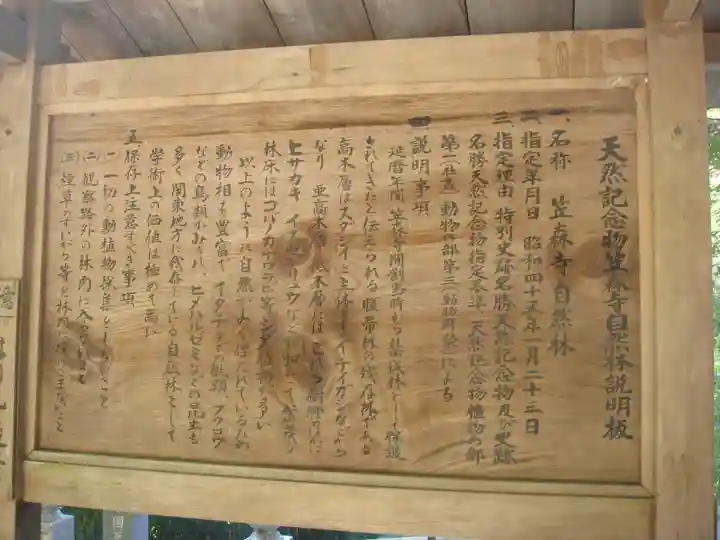 天然記念物笠森寺自然林説明板
一、名称 笠森寺自然林
二、指定年月日 昭和四十五年一月二十三日
三、指定理由 特別史跡名勝天然記念物及び史跡
名勝天然記念物指定基準、天然記念物植物の部
第二 動物の部第三 による
四、説明事項
延暦年間、笠森寺開創当時から禁伐林として保護
されてきたと伝えられる暖帯林の残存林である
高木層はスダジイを主体に イチイガシなどから
なり 亜高木層 低木層には これらの樹種のほかに
ヒサカキ イヌ など 多く
林床にはコバノカナワラビ等シダ 多い
以上のように自然がよく保たれているため
動物相も豊富で、イタチ の類、フクロウ
などの鳥類がおり、ヒメハルゼミなどの昆虫も
多く、関東地方に残存している自然林として
学術上の価値は極めて高い
五、保存上注意すべき事項
(一) 一切の動植物採集をしないこと
(二) 観察路外の林内に入らないこと
(三) 煙草のすいがら等を林内に捨てないこと